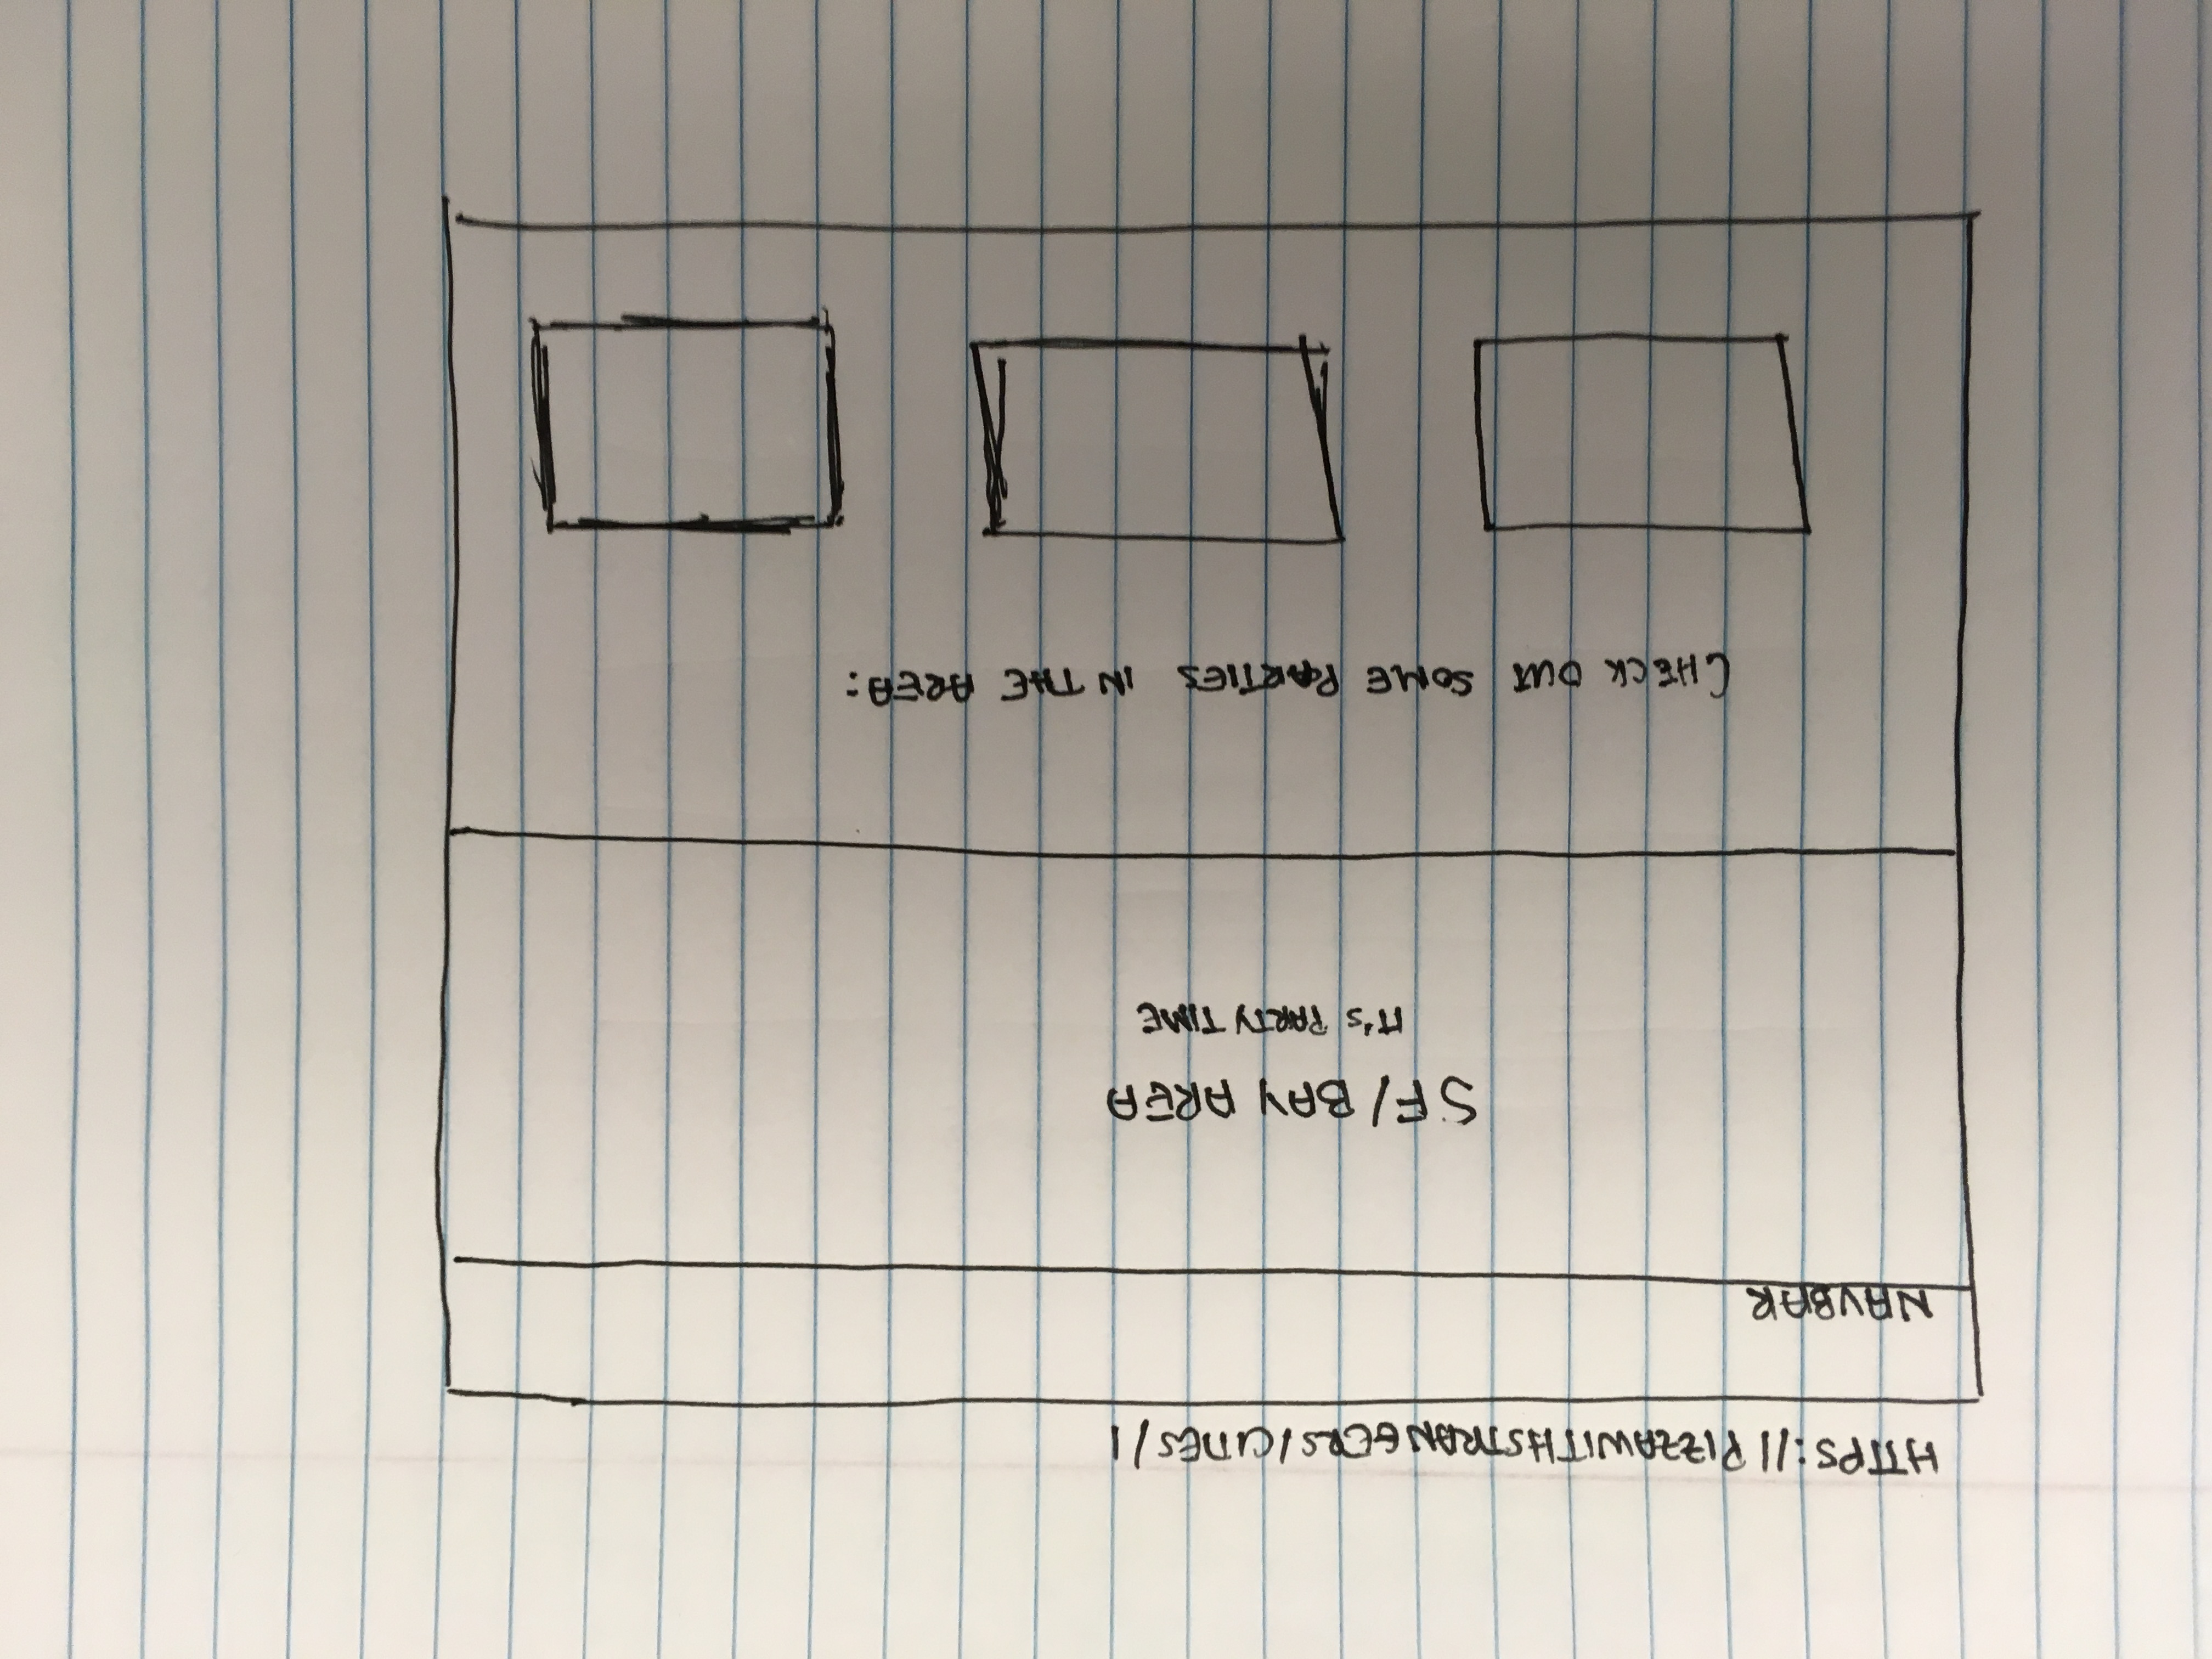 HTTPS://PIZZAWITHSTRANGERS/CITIES/1
NAVBAR
SF/BAY AREA
IT'S PARTY TIME
CHECK OUT SOME PARTIES IN THE AREA: